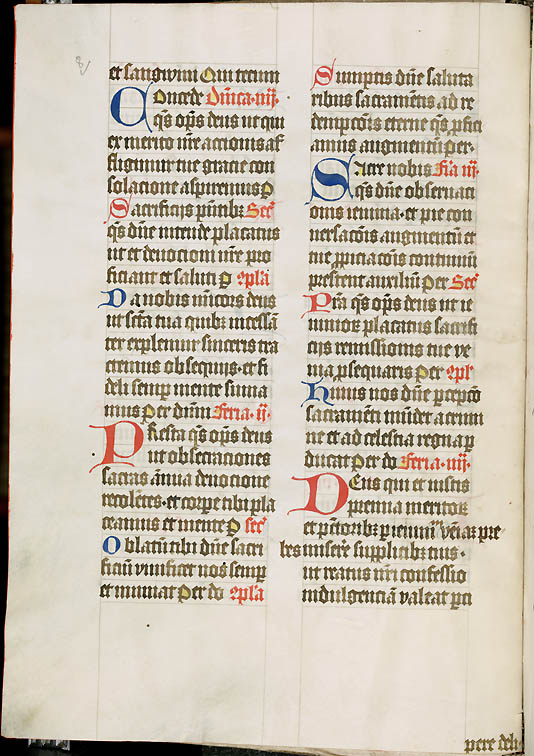 et sanguini Qui tecum
Concede Dn̄ica·iiij·
q̄s op̄s deus ut qui
ex merito nr̄e actionis af
fligimur tue gracie con
solacione aspiremus P
Sacrificijs pn̄tibꝫ Secͬ
q̄s dn̄e intende placatus
ut et deuocioni nr̄e pro
ficiant et saluti P 9pla
Da nobis mīcors deus
ut sc̄ta tua quibꝫ incessā
ter explemur sinceris tra
ctemus obsequijs· et fi
deli semꝑ mente suma
mus Per dn̄um Feria·ij·
Presta q̄s op̄s deus
ut obseruaciones
sacras ānua deuocione
recolētes· et corpe tibi pla
ceamus et mente P secͬ
Oblatū tibi dn̄e sacri
ficiū viuificet nos semꝑ
et muniat Per do 9pla
Sumptis dn̄e saluta
ribus sacramētis ad re
dempcōis eterne q̄s ꝓfici
amus augmentū per·
Sacre nobis Fīa iij·
q̄s dn̄e obseruaci
onis ieiunia· et pie con
uersacōis augmentū et
tue ꝓpiciacōis continuū
prestent auxiliū Per Secͬ
Pr̄ia q̄s op̄s deus ut ie
iunioꝝ placatus sacrifi
cijs remissionis tue ve
nia ꝓsequaris Per 9plͣ
Huius nos dn̄e ꝑcepcō
sacramēti mūdet a crimi
ne et ad celestia regna ꝑ
ducat Per do Feria·iiij·
Deus qui et iustis
premia meritoꝝ
et pctoribꝫ ꝑ ieiuniū veniā pre
bes miserē supplicibꝫ tuis·
ut reatus nr̄i confessio
indulgenciā valeat ꝑci
pere deli